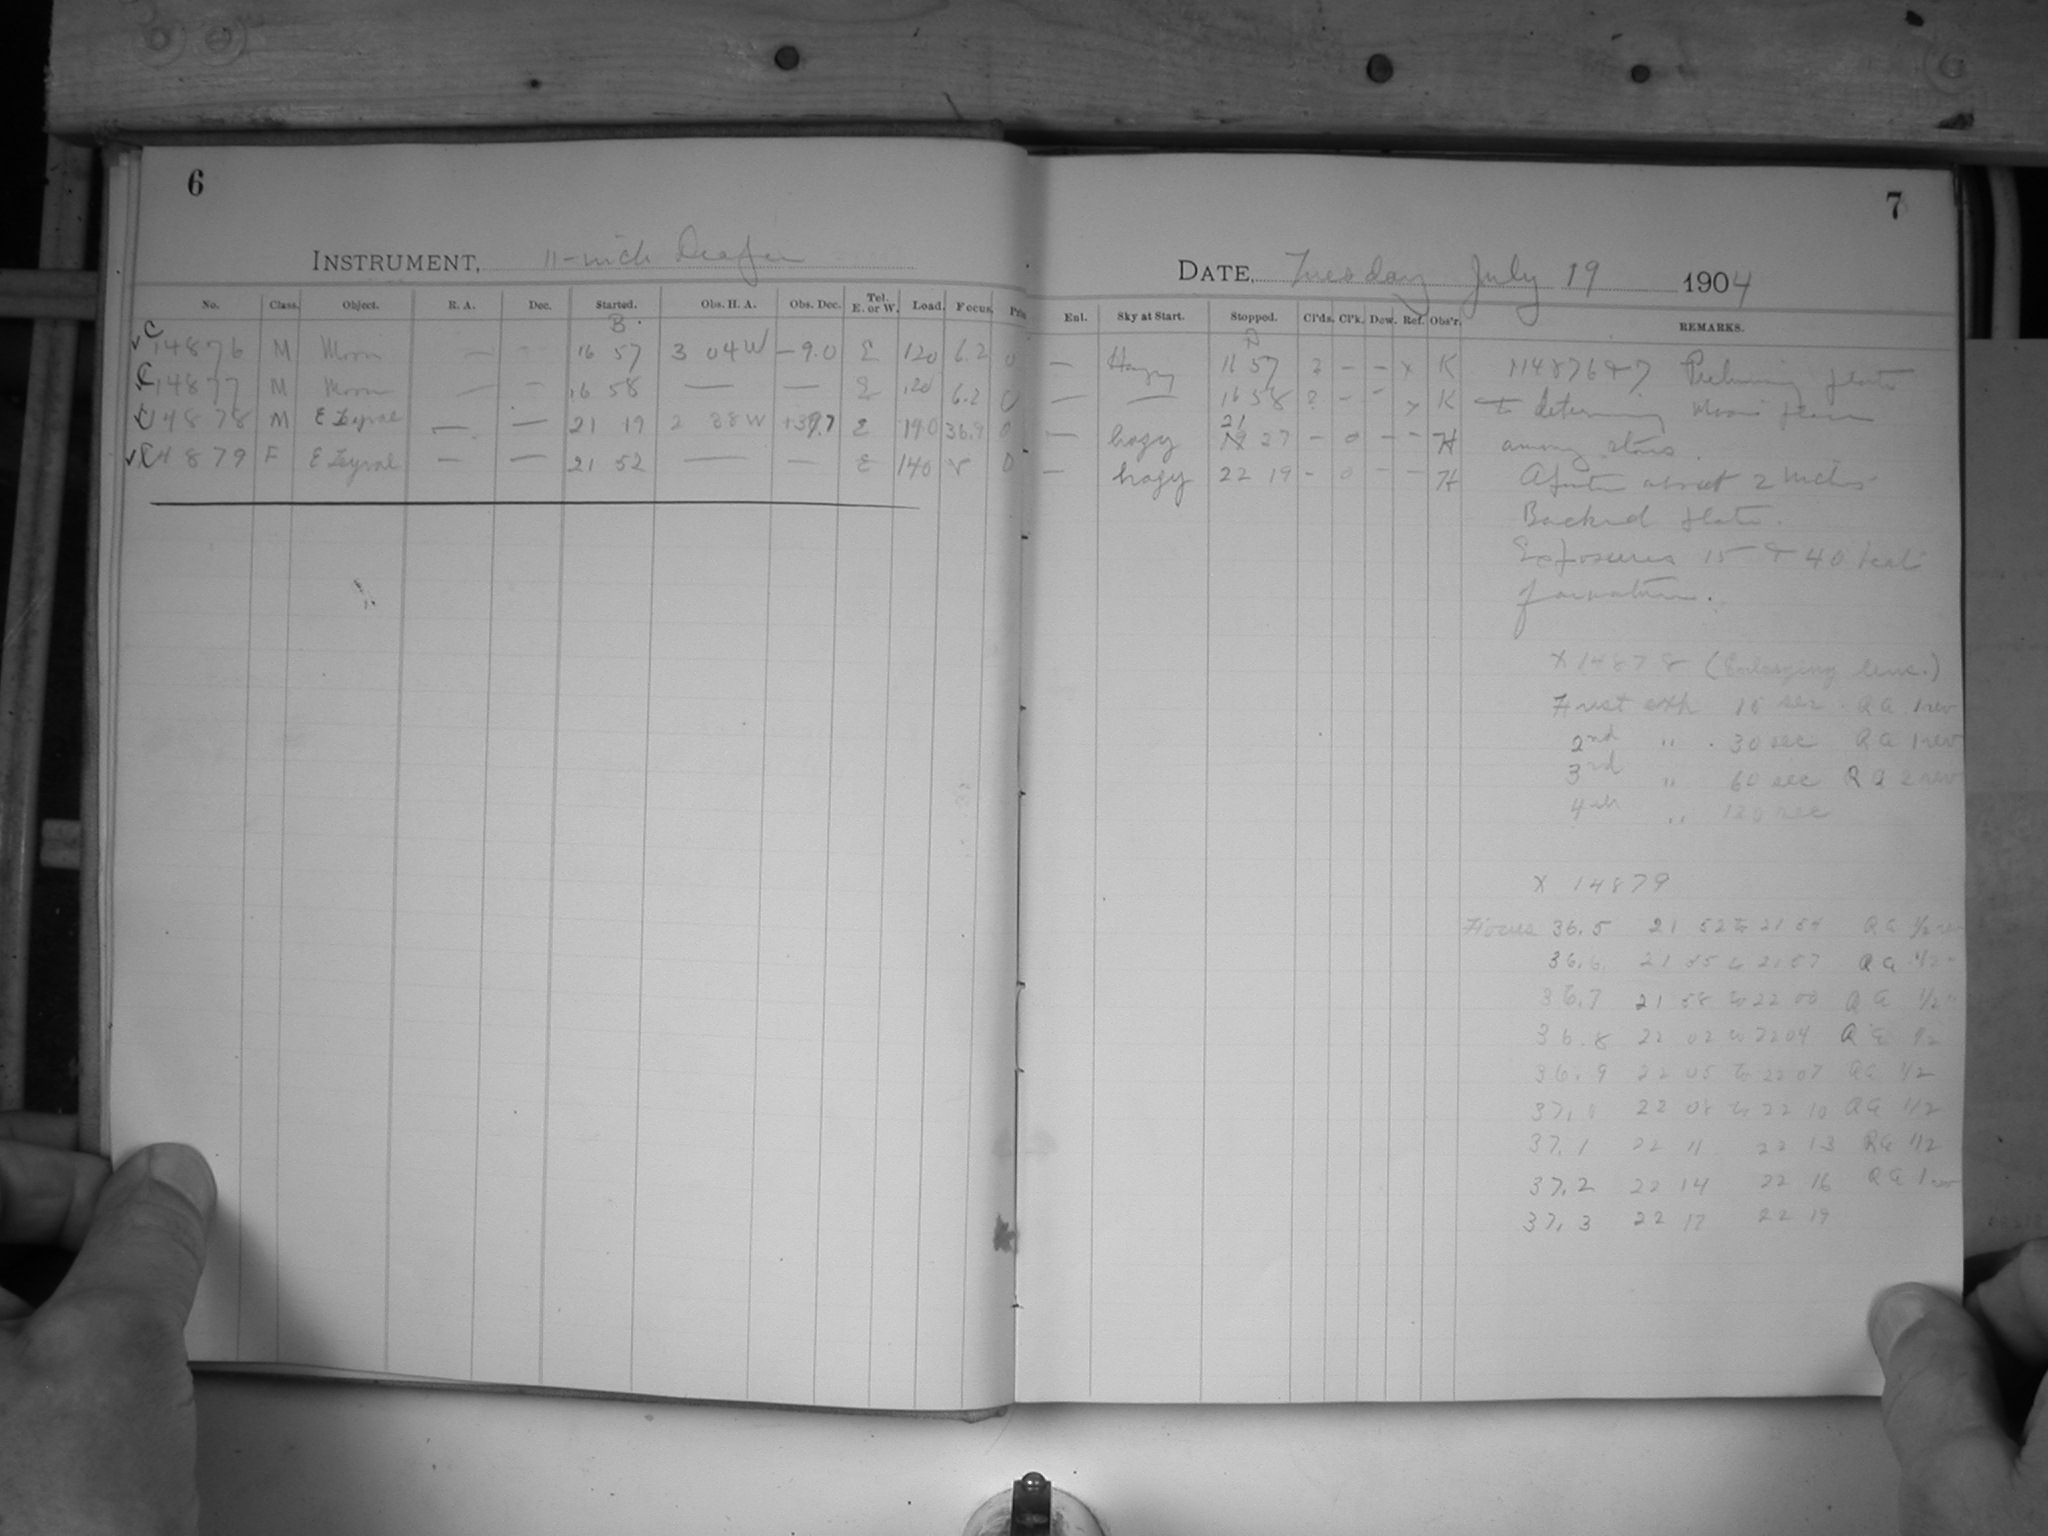 6
INSTRUMENT, 11-inch Draper
No. Class. Object. R. A. Dec. Started. Obs. H. A. Obs. Dec. Tel. E. or W. Load. Focus.
B.
C 14876 M Moon — - 16 57 3 04 W -9.0 E 120 6.2
C 14877 M Moon — - 16 58 — — E 120 6.2
C 14878 M E Lyrae — — 21 19 2 W +39.7 E 140 36.9
C 14879 F E Lyrae — — 21 52 — — E 140 v
7
DATE, Tuesday July 19 1904
Enl. Sky at Start. Stopped. Cl'ds. Cl'k. Dew. Ref. Obs'r. REMARKS.
— Hazy 16 57 ? - - x K 14876 & 7 Preliminary plates
— — 16 58 ? - - x K to determine Moon's place
21
— hazy 27 - 0 - - H among stars.
— hazy 22 19 - 0 - - H about 2 inches
Backed plate.
Exposures 15 & 40
X 14878 (Enlarging lens.)
First exp 15 sec RA 1 rev
2nd " 30 sec RA 1 rev
3rd " 60 sec RA 2 rev
4th " 120 sec
X 14879
Focus 36.5 21 52 to 21 54 RA 1/2 rev
36.6 21 55 to 21 57 RA 1/2 "
36.7 21 58 to 22 00 RA 1/2 "
36.8 22 02 to 22 04 RA 1/2
36.9 22 05 to 22 07 RA 1/2
37.0 22 08 to 22 10 RA 1/2
37.1 22 11 22 13 RA 1/2
37.2 22 14 22 16 RA 1 rev
37.3 22 17 22 19